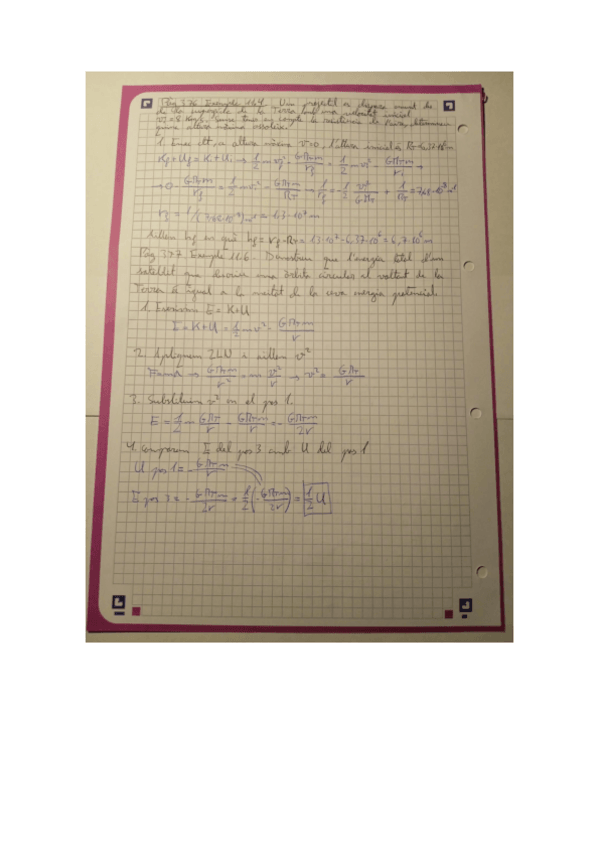 Pàg 376 Exemple 11.4. Un projectil es dispara amunt des
de la superfície de la Terra amb una velocitat inicial
vi = 8 Km/s. Sense tenir en compte la resistència de l'aire, determineu
quina altura màxima
1. Emec cte, a altura màxima v=0, l'altura inicial és RT=6,37·10⁶m
Kf + Uf = Ki + Ui → 1/2 m vf² - GMTm/rf = 1/2 m vi² - GMTm/ri →
→ 0 - GMTm/rf = 1/2 m vi² - GMTm/RT → 1/rf = -1/2 vi²/GMT + 1/RT = 7,68·10⁻⁸ m⁻¹
rf = 1/(7,68·10⁻⁸) m = 1,3·10⁷ m
Aïllem hf en què hf = rf - RT = 1,3·10⁷ - 6,37·10⁶ = 6,7·10⁶ m
Pàg 377 Exemple 11.6. Demostreu que l'energia total d'un
satèl·lit que descriu una òrbita circular al voltant de la
Terra és igual a la meitat de la seva energia potencial.
1. E = K+U
E = K+U = 1/2 m v² - GMTm/r
2. Apliquem 2LN i aïllem v²
F=ma → GMTm/r² = m v²/r → v² = GMT/r
3. Substituïm v² en el pas 1.
E = 1/2 m GMT/r - GMTm/r = - GMTm/2r
4. Comparem E del pas 3 amb U del pas 1
U pas 1 = - GMTm/r
E pas 3 = - GMTm/2r = 1/2 (- GMTm/2r) = 1/2 U